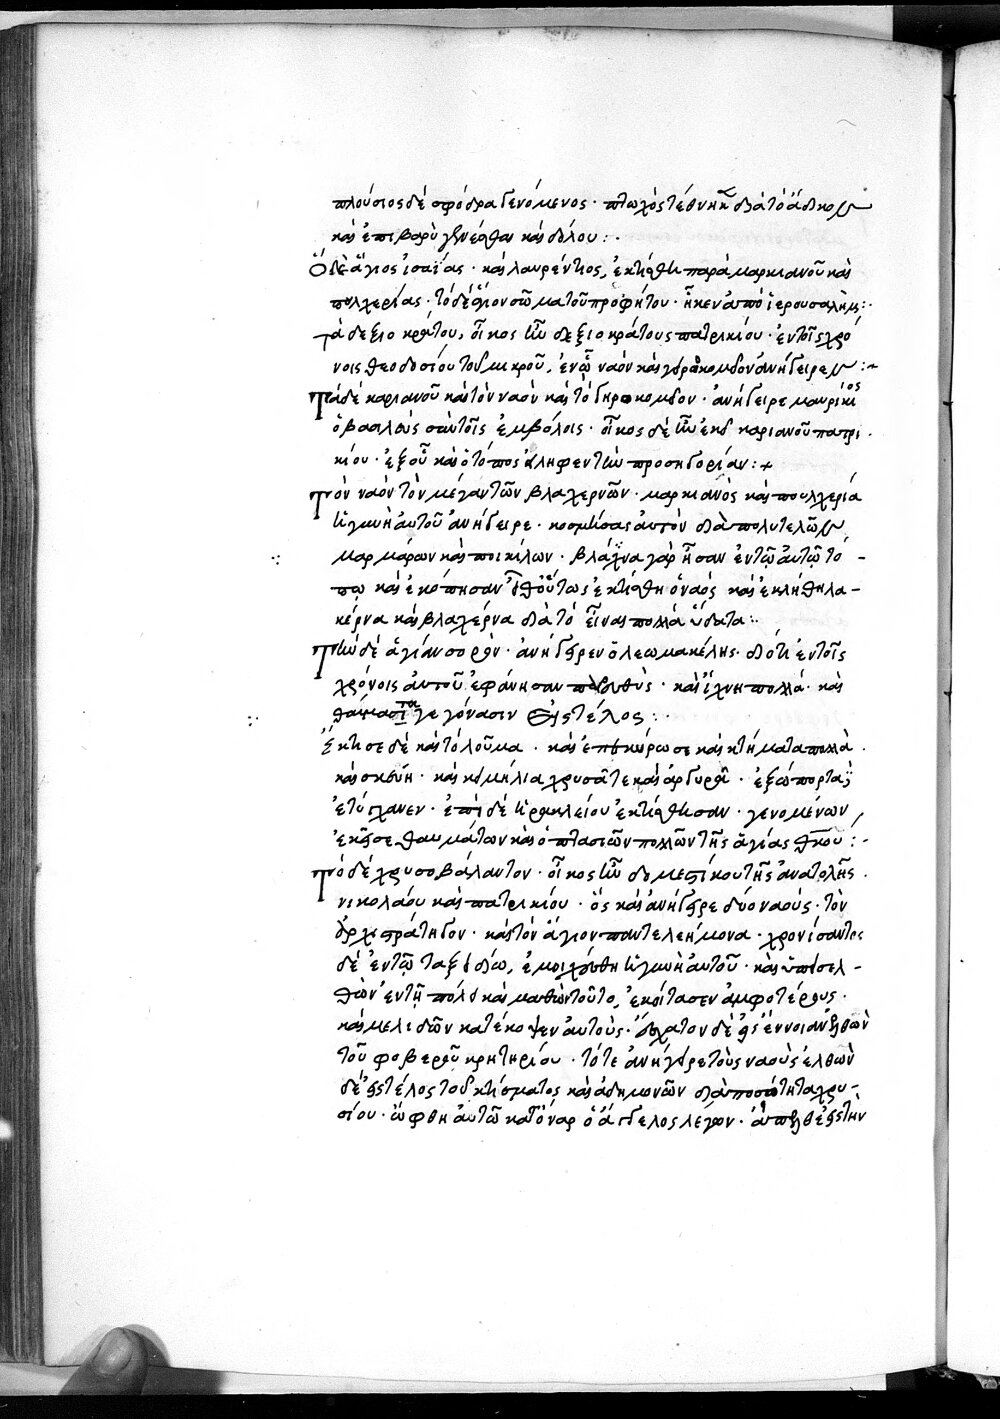 πλούσιος δὲ σφόδρα γενόμενος· πτωχὸς τέθνηκε διὰ τὸ ἄδικον
καὶ ἐπιβαρὺ γενέσθαι καὶ δόλου:·
Ὁ δὲ ἅγιος ἰσαΐας· καὶ λαυρέντιος, ἐκτίσθη παρὰ μαρκιανοῦ καὶ
πουλχερίας· τὸ δὲ ἅγιον σῶμα τοῦ προφήτου· ἧκεν ἀπὸ ἱερουσαλήμ:·
Τὰ δεξιοκράτους, οἶκος ἦν δεξιοκράτους πατρικίου· ἐν τοῖς χρό
νοις θεοδοσίου τοῦ μικροῦ, ἐν ᾧ ναὸν καὶ γηροκομεῖον ἀνήγειρεν:·
Τὰ δὲ καριανοῦ καὶ τὸν ναὸν καὶ τὸ γηροκομεῖον· ἀνήγειρε μαυρίκιος
ὁ βασιλεὺς σὺν τοῖς ἐμβόλοις· οἶκος δὲ ἦν ἐκεῖ καριανοῦ πατρι
κίου· ἐξ οὗ καὶ ὁ τόπος εἴληφεν τὴν προσηγορίαν:+
Τὸν ναὸν τὸν μέγαν τῶν βλαχερνῶν· μαρκιανὸς καὶ πουλχερία
ἡ γυνὴ αὐτοῦ ἀνήγειρε· κοσμίσας αὐτὸν διὰ πολυτελῶν
μαρμάρων καὶ ποικίλων· βλάχνα γὰρ ἦσαν ἐν τῷ αὐτῷ τό-
πῳ καὶ ἐκόπησαν οὕτως ἐκτίσθη ὁ ναός καὶ ἐκλήθη λα-
κέρνα καὶ βλαχέρνα διὰ τὸ εἶναι πολλὰ ὕδατα:·
Τὴν δὲ ἁγίαν σορὸν· ἀνήγειρεν ὁ λέων μακέλης· διότι ἐν τοῖς
χρόνοις αὐτοῦ ἐφάνησαν· καὶ ἴχνη πολλά· καὶ
θαυμαστὰ γεγόνασιν εἰς τέλος:·
Ἔκτισε δὲ καὶ τὸ λοῦμα· καὶ ἐπεκύρωσε καὶ κτήματα πολλὰ.
καὶ σκεύη· καὶ κειμήλια χρυσᾶ τε καὶ ἀργυρᾶ· ἔξω πόρτας
ἐτύγχανεν· ἐπὶ δὲ ἡρακλείου ἐκτίσθησαν· γενομένων
ἐκεῖσε θαυμάτων καὶ ὀπτασιῶν πολλῶν τῆς ἁγίας θκου:-
Τὸ δὲ χρυσοβάλαντον· οἶκος ἦν δομεστίκου τῆς ἀνατολῆς.
νικολάου καὶ πατρικίου· ὃς καὶ ἀνήγειρε δύο ναούς· τὸν
ἀρχιστράτηγον· καὶ τὸν ἅγιον παντελεήμονα· χρονίσαντος
δὲ ἐν τῷ ταξειδίῳ, ἐμοιχεύθη ἡ γυνὴ αὐτοῦ· καὶ ὑπεισελ-
θὼν ἐν τῇ πόλει καὶ μαθὼν τοῦτο, ἐκράτησεν ἀμφοτέρους.
καὶ μελιδὸν κατέκοψεν αὐτούς· ὕστατον δὲ εἰς ἔννοιαν ἐλθὼν
τοῦ φοβεροῦ κριτηρίου· τότε ἀνήγειρε τοὺς ναοὺς ἐλθὼν
δὲ εἰς τέλος τοῦ κτίσματος καὶ ἀδημονῶν διὰ ποσότητα χρυ-
σίου· ὤφθη αὐτῷ κατόναρ ὁ ἄγγελος λέγων· ἄπελθε εἰς τὴν